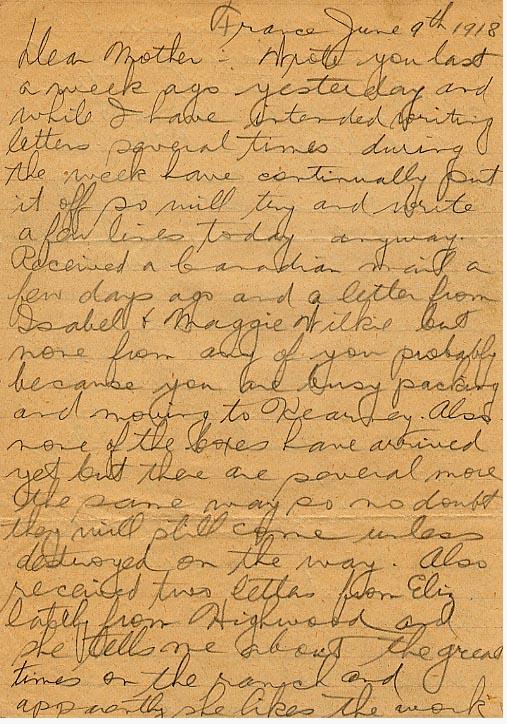 France June 9th 1918
Dear Mother:- Wrote you last
a week ago yesterday and
while I have intended writing
letters several times during
the week have continually put
it off so will try and write
a few lines today anyway.
Received a Canadian mail a
few days ago and a letter from
Isabel & Maggie Wilkie but
none from any of you probably
because you are busy packing
and moving to Kearney. Also
none of the boxes have arrived
yet but there are several more
the same way so no doubt
they will still come unless
destroyed on the way. Also
received two letters from Eliz
lately from Highwood and
she tells me about the great
times on the ranch and
apparently she likes the work